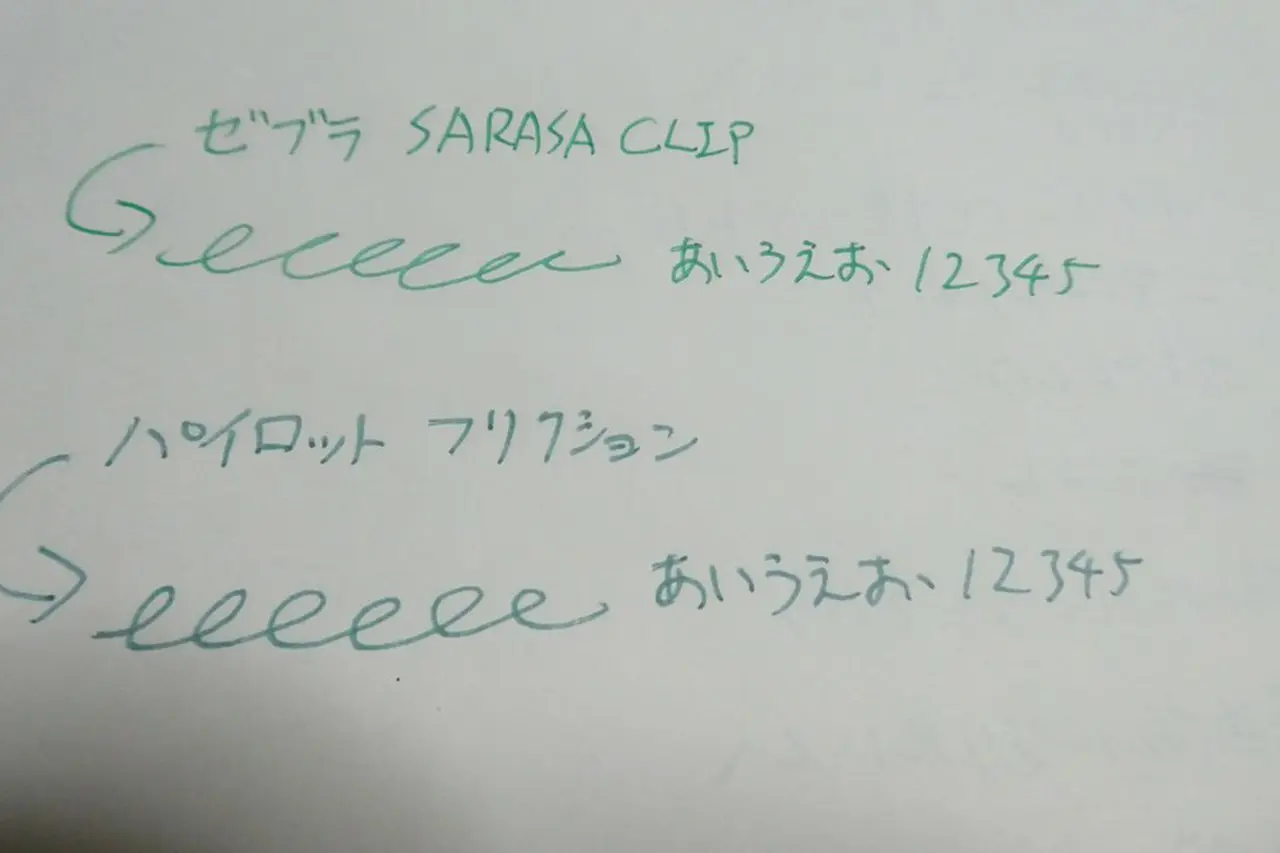 ゼブラ SARASA CLIP
あいうえお 12345
パイロット フリクション
あいうえお 12345